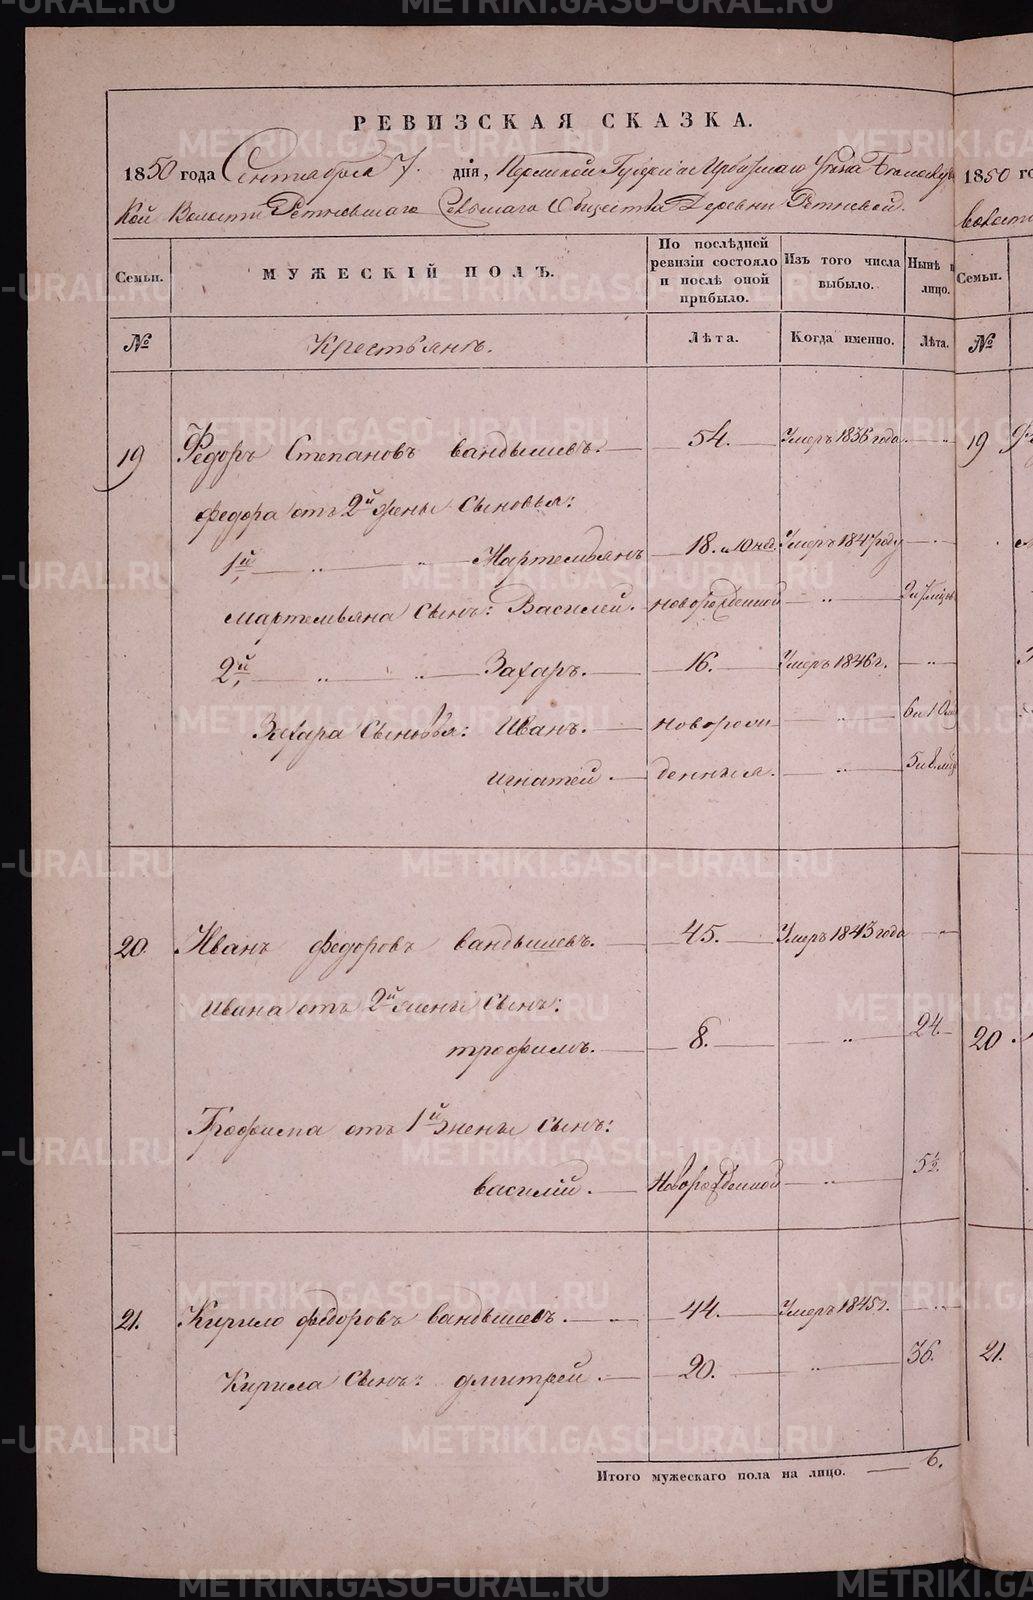 РЕВИЗСКАЯ СКАЗКА.
1850 года Сентября 7. дня, Пермской Губернiи Ирбитскаго Уѣзда
кой Волости Рѣтневскаго Сельскаго Общества Деревни Рѣтневой.
Семьи. МУЖЕСКІЙ ПОЛЪ. По послѣдней ревизіи состояло и послѣ оной прибыло. Изъ того числа выбыло. Нынѣ на лицо.
№ Крестьянъ. Лѣта. Когда именно. Лѣта.
19 Федоръ Степановъ вандышевъ. 54. Умеръ 1836 года
федора отъ 2й жены сыновья:
1й " " Мартемьянъ 18. Умеръ 1847 году
мартемьяна сынъ: Василей. новорожденной "
2й " " Захаръ. 16. Умеръ 1846 г. "
Захара сыновья: Иванъ. новорож "
игнатей денныя. "
20 Иванъ федоровъ вандышевъ. 45. Умеръ 1843 года
ивана отъ 2й жены сынъ:
трофимъ. 8. " 24.
Трофима отъ 1й жены сынъ:
василій. Новорожденной " 5½.
21. Кирило федоровъ вандышевъ. 44. Умеръ 1845 г.
Кирила сынъ: дмитрей. 20. " 36.
Итого мужескаго пола на лицо. 6.
1850
Семьи.
№
19
20
21.
METRIKI.GASO-URAL.RU